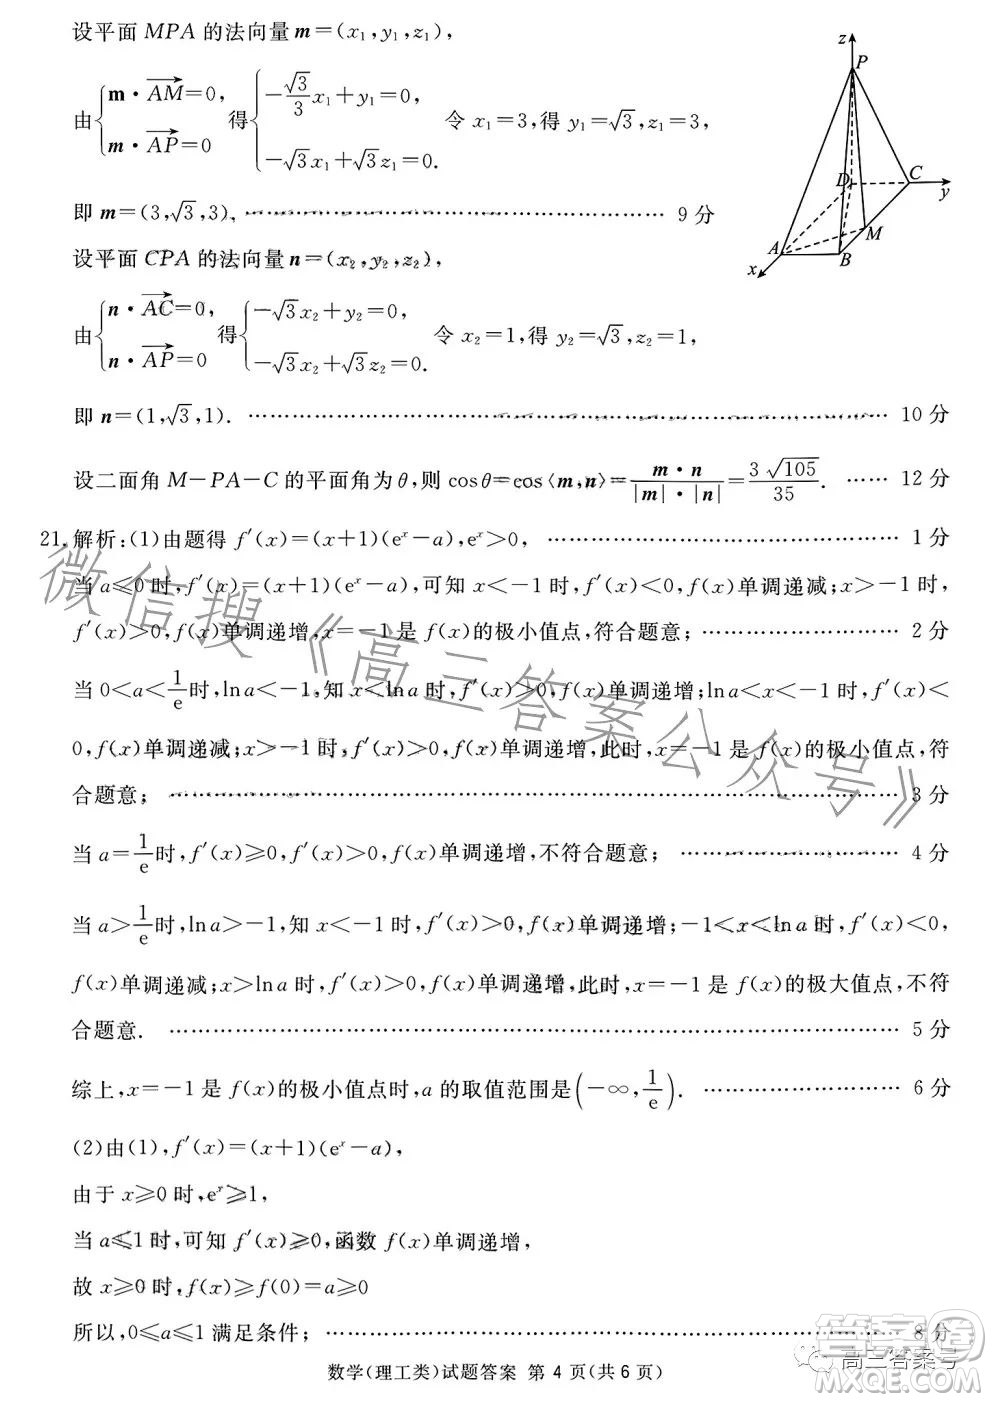 设平面 MPA 的法向量 m=(x₁,y₁,z₁),
由{m·AM→=0, m·AP→=0 得{-√3/3 x₁+y₁=0, -√3x₁+√3z₁=0. 令 x₁=3,得 y₁=√3,z₁=3,
即 m=(3,√3,3), ………………………………………… 9 分
设平面 CPA 的法向量 n=(x₂,y₂,z₂),
由{n·AC→=0, n·AP→=0 得{-√3x₂+y₂=0, -√3x₂+√3z₂=0. 令 x₂=1,得 y₂=√3,z₂=1,
即 n=(1,√3,1). ………………………………………… 10 分
设二面角 M-PA-C 的平面角为 θ,则 cosθ=cos⟨m,n⟩=m·n/(|m|·|n|)=3√105/35. …… 12 分
z
P
D
C
y
A
B
M
x
21.解析:(1)由题得 f′(x)=(x+1)(eˣ-a),eˣ>0, ………………………… 1 分
当 a≤0 时,f′(x)=(x+1)(eˣ-a),可知 x<-1 时,f′(x)<0,f(x)单调递减;x>-1 时,
f′(x)>0,f(x)单调递增,x=-1 是 f(x)的极小值点,符合题意; ……………… 2 分
当 0<a<1/e 时,ln a<-1,知 x<ln a 时,f′(x)>0,f(x)单调递增;ln a<x<-1 时,f′(x)<
0,f(x)单调递减;x>-1 时,f′(x)>0,f(x)单调递增,此时,x=-1 是 f(x)的极小值点,符
合题意; ………………………………………… 3 分
当 a=1/e 时,f′(x)≥0,f′(x)>0,f(x)单调递增,不符合题意; ……………… 4 分
当 a>1/e 时,ln a>-1,知 x<-1 时,f′(x)>0,f(x)单调递增;-1<x<ln a 时,f′(x)<0,
f(x)单调递减;x>ln a 时,f′(x)>0,f(x)单调递增,此时,x=-1 是 f(x)的极大值点,不符
合题意. ………………………………………… 5 分
综上,x=-1 是 f(x)的极小值点时,a 的取值范围是(-∞,1/e). ……………… 6 分
(2)由(1),f′(x)=(x+1)(eˣ-a),
由于 x≥0 时,eˣ≥1,
当 a≤1 时,可知 f′(x)≥0,函数 f(x)单调递增,
故 x≥0 时,f(x)≥f(0)=a≥0
所以,0≤a≤1 满足条件; ………………………………………… 8 分
数学(理工类)试题答案 第 4 页(共 6 页)
微信搜《高三答案公众号》
答案圈
高三答案号
MXQE.COM